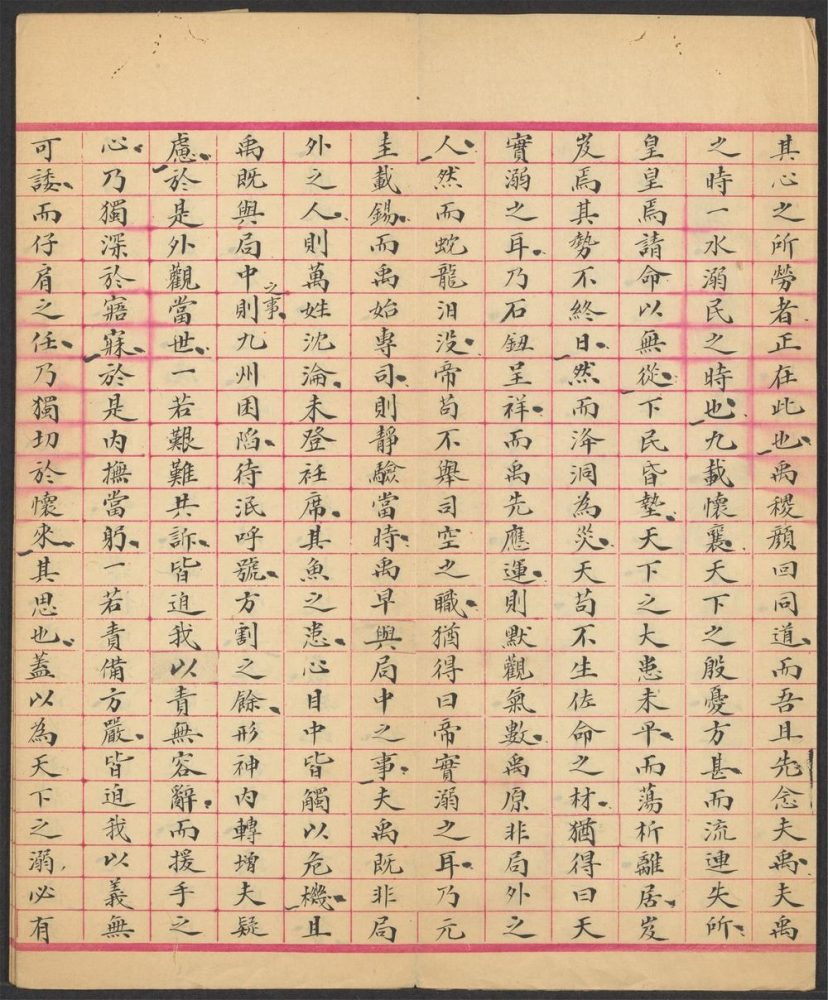 其心之所勞者正在此也禹稷顏回同道而吾且先念夫禹夫禹
之時一水溺民之時也九載懷襄天下之殷憂方甚而流連失所
皇皇焉請命以無從下民昏墊天下之大患未平而蕩析離居岌
岌焉其勢不終日然而洚洞為災天苟不生佐命之材猶得曰天
實溺之耳乃石鈕呈祥而禹先應運則默觀氣數禹原非局外之
人然而蛇龍汨没帝苟不舉司空之職猶得曰帝實溺之耳乃元
圭載錫而禹始專司則靜驗當時禹早與局中之事夫禹既非局
外之人則萬姓沈淪未登衽席其魚之患心目中皆觸以危機且
禹既與局中之事則九州困陷待泯呼號方割之餘形神内轉增夫疑
慮於是外觀當世一若艱難共訴皆迫我以責無容辭而援手之
心乃獨深於寤寐於是内撫當躬一若責備方嚴皆迫我以義無
可諉而仔肩之任乃獨切於懷來其思也蓋以為天下之溺必有